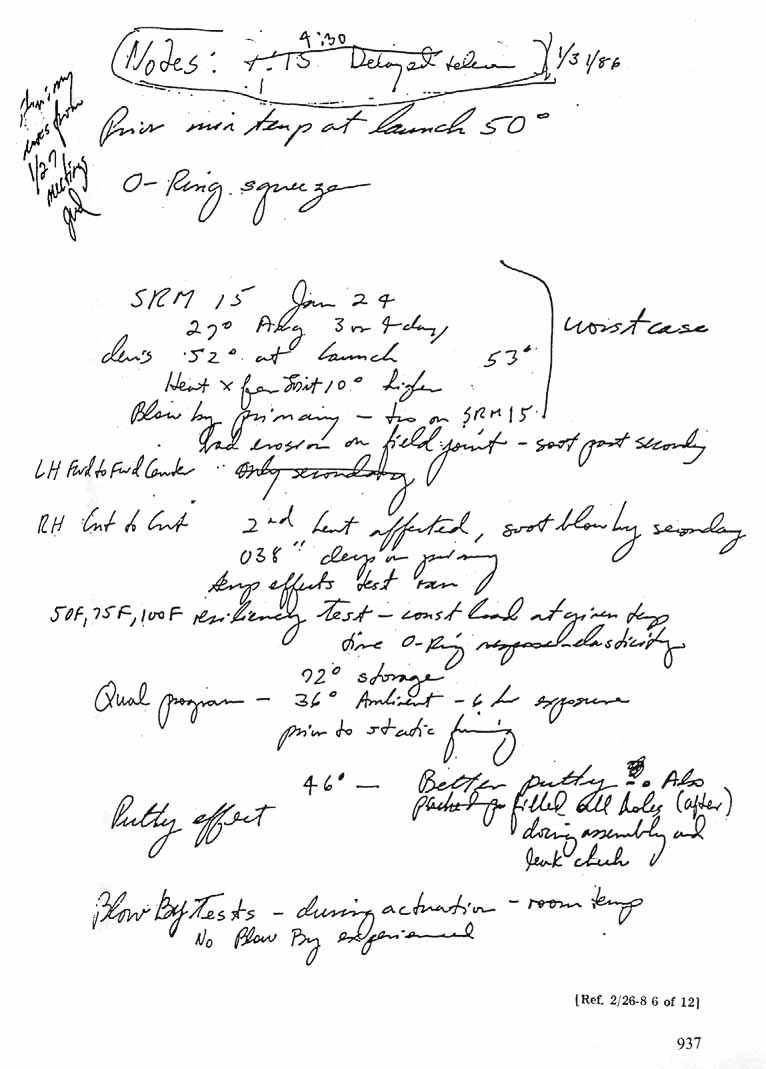 4:30
Notes: 1:15 Delayed telecon 1/31/86
notes from
1/27
meeting
Prior min temp at launch 50°
O-Ring squeeze
SRM 15 Jan 24
27° Avg 3 or 4 days
52° at launch 53°
worst case
Heat xfer 10° higher
Blow by primary - two on SRM 15
had erosion on field joint - soot past secondary
LH Fwd to Fwd Center Only secondary
RH Cnt to Cnt 2nd heat affected, soot blow by secondary
038" deep on primary
temp effects test ran
50F, 75F, 100F resiliency Test - const load at given temp
time O-Ring response-elasticity
72° storage
Qual program - 36° Ambient - 6 hr exposure
prior to static firing
46° - Better putty - Also
packed filled all holes (after)
Putty effect
doing assembly and
leak check
Blow By Tests - during actuation - room temp
No Blow By experienced
[Ref. 2/26-8 6 of 12]
937